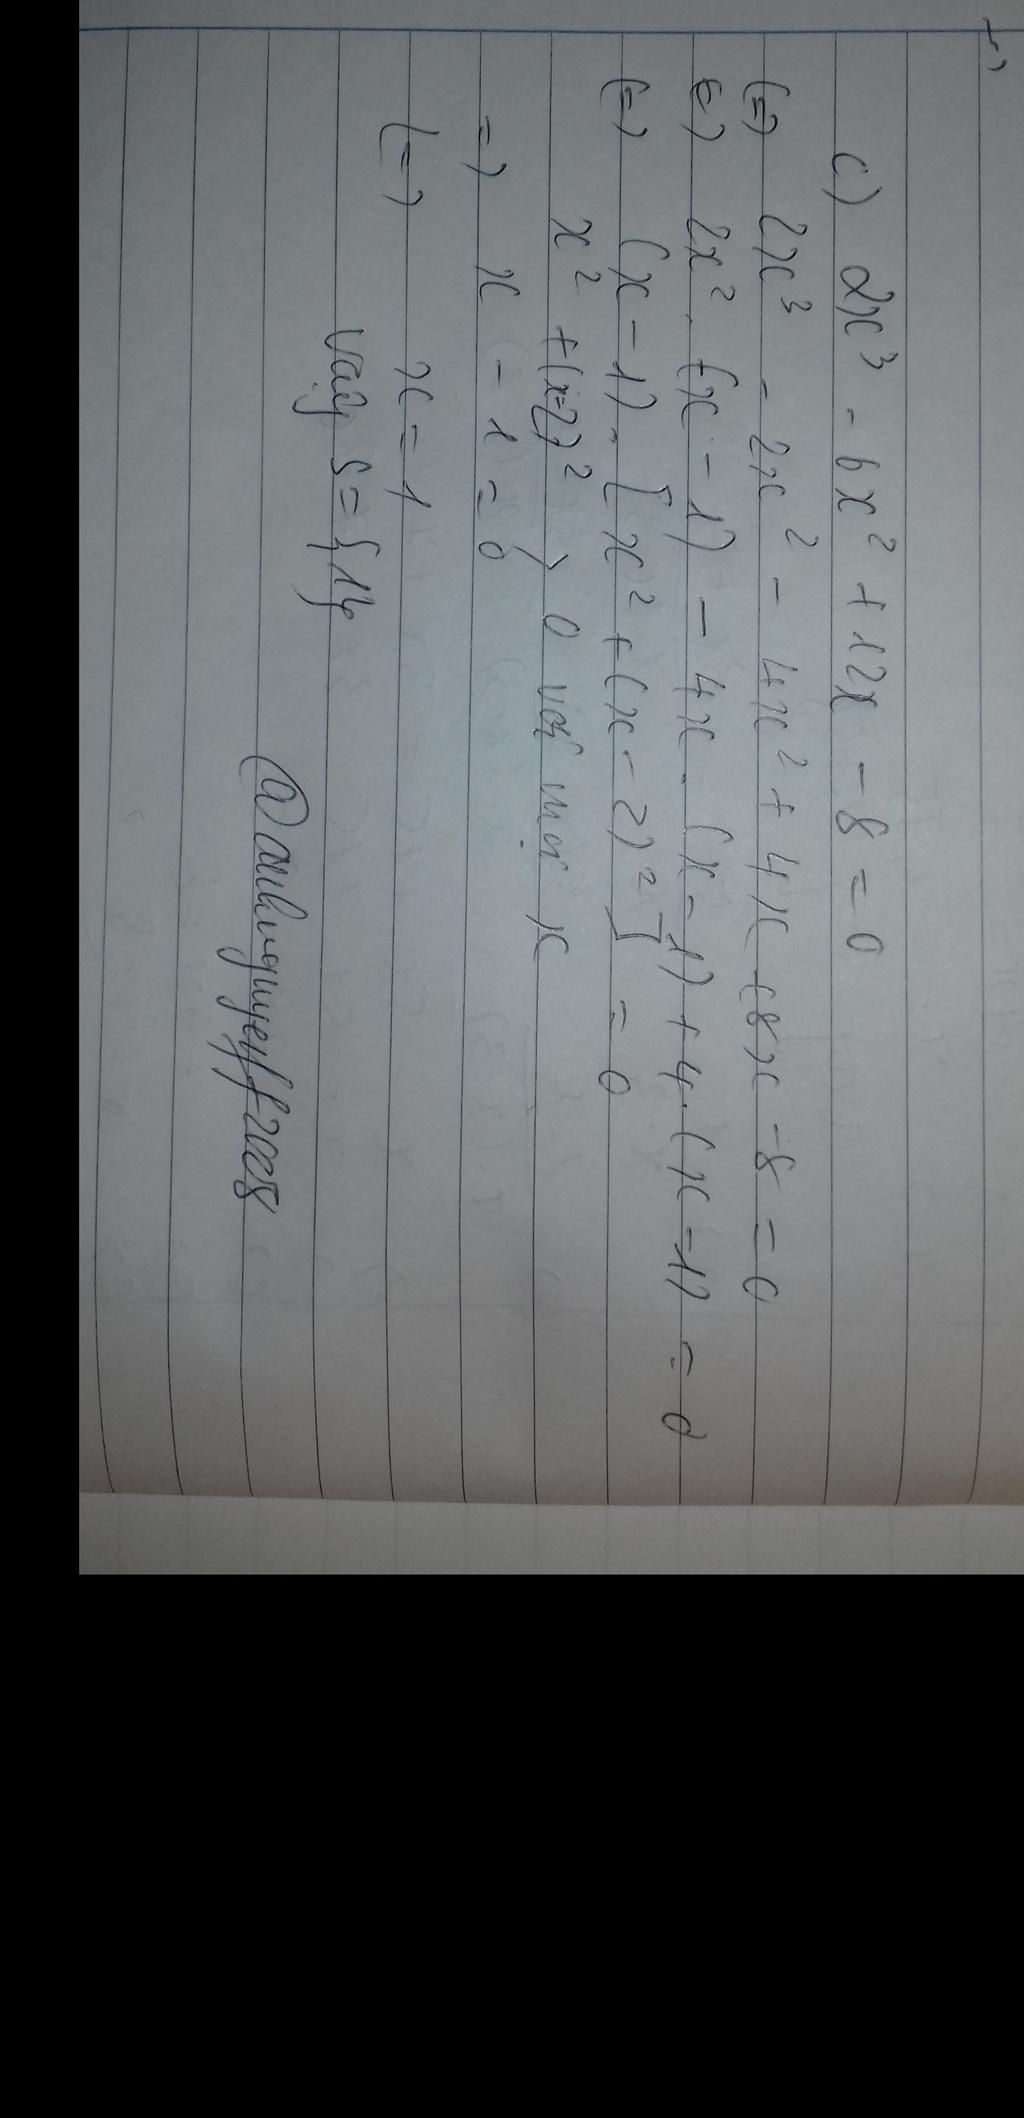 c) 2x³ - 6x² + 12x - 8 = 0
(=) 2x³ - 2x² - 4x² + 4x + 8x - 8 = 0
(=) 2x². (x - 1) - 4x. (x - 1) + 4. (x - 1) = 0
(=) (x - 1). [x² + (x - 2)²] = 0
x² + (x - 2)² > 0 với mọi x
=) x - 1 = 0
(=) x = 1
Vậy S = {1}